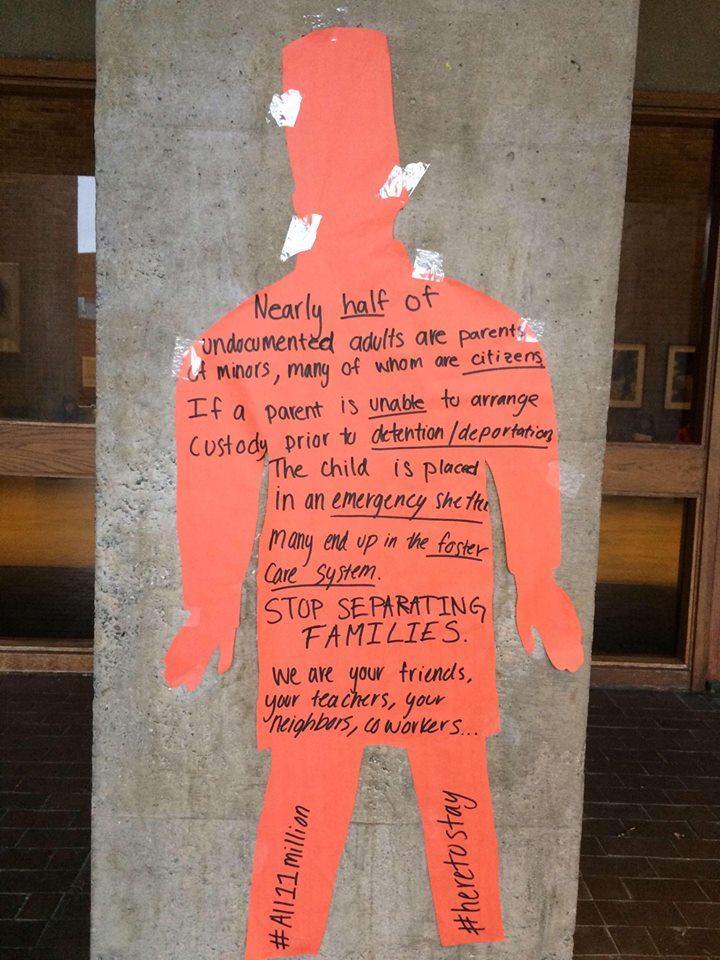 Nearly half of
undocumented adults are parents
of minors, many of whom are citizens
If a parent is unable to arrange
custody prior to detention/deportation
The child is placed
in an emergency shelter
many end up in the foster
care system.
STOP SEPARATING
FAMILIES.
We are your friends,
your teachers, your
neighbors, coworkers...
#All11million
#heretostay